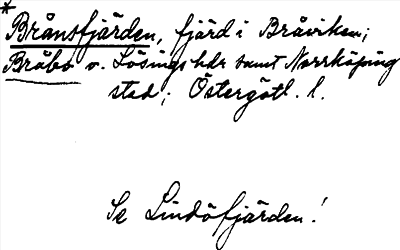 *
Bränsfjärden, fjärd i Bråviken;
Bråbo o. Lösings hdr samt Norrköping
stad; Östergötl. l.
Se Lindöfjärden!